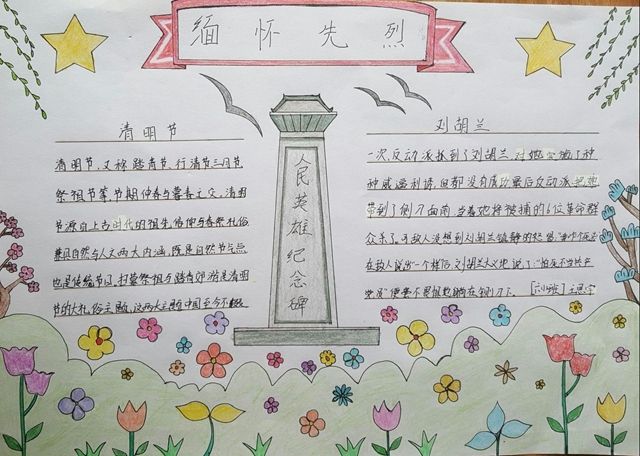 缅怀先烈
清明节
清明节，又称踏青节、行清节、三月节、
祭祖节等，节期仲春与暮春之交。清明
节源自上古时代的祖先信仰与春祭礼俗，
兼具自然与人文两大内涵，既是自然节气点，
也是传统节日，扫墓祭祖与踏青郊游是清明
节的大礼俗主题，这两大主题在中国至今不
人民英雄纪念碑
刘胡兰
一次，反动派抓到了刘胡兰，对她实施了种
种威逼利诱，但都没有成功最后反动派把她
带到了侧刀面前，当着她将被捕的6位革命群
众杀了。敌人没想到刘胡兰镇静的
在敌人说出一个样后刘胡兰大义地说了："怕死不当共产
党员"